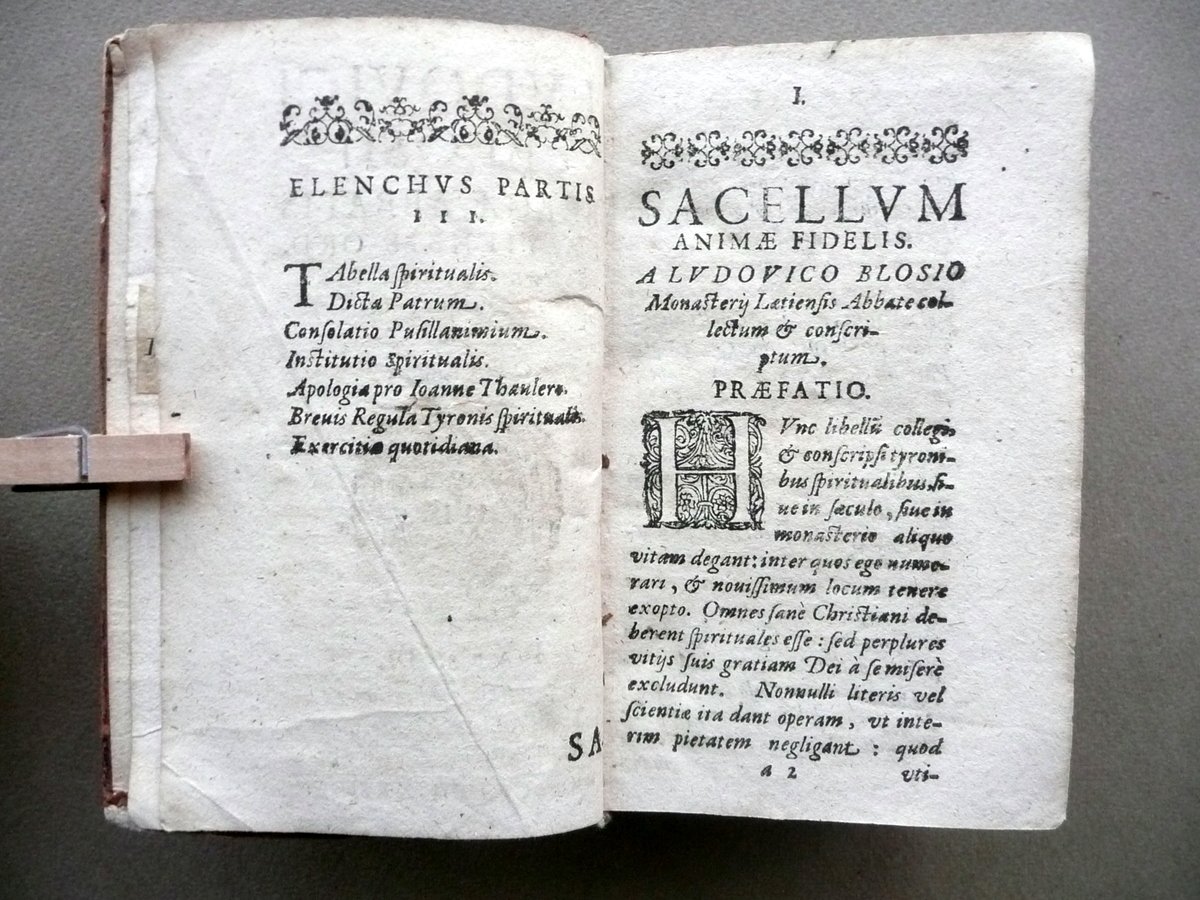 ELENCHVS PARTIS
III.
TAbella ſpiritualis.
Dicta Patrum.
Conſolatio Puſillanimium.
Inſtitutio ſpiritualis.
Apologia pro Ioanne Thaulero.
Breuis Regula Tyronis ſpiritualis.
Exercitia quotidiana.
SA-
1
I.
SACELLVM
ANIMÆ FIDELIS.
A LVDOVICO BLOSIO
Monasterij Lætienſis Abbate col-
lectum & conſcri-
ptum.
PRÆFATIO.
HVnc libellū collegi
& conſcripſi tyroni-
bus ſpiritualibus, ſi-
ue in ſæculo, ſiue in
monasterio aliquo
vitam degant: inter quos ego nume-
rari, & nouiſſimum locum tenere
exopto. Omnes ſanè Chriſtiani de-
berent ſpirituales eſſe: ſed perplures
vitijs ſuis gratiam Dei à ſe miſerè
excludunt. Nonnulli literis vel
ſcientiæ ita dant operam, vt inte-
rim pietatem negligant: quod
a 2 vti-